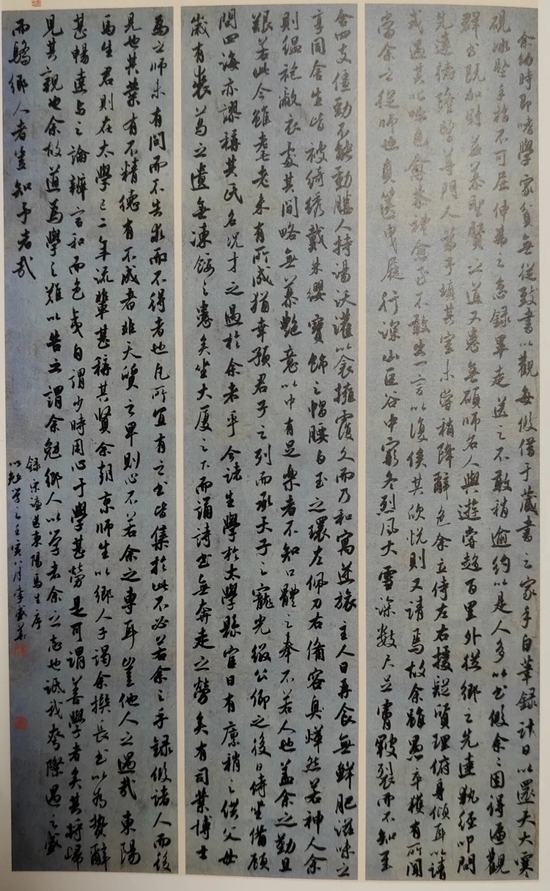 余幼時即嗜學家貧無從致書以觀每假借於藏書之家手自筆錄計日以還天大寒
硯冰堅手指不可屈伸弗之怠錄畢走送之不敢稍逾約以是人多以書假余余因得遍觀
群書既加冠益慕聖賢之道又患無碩師名人與遊嘗趨百里外從鄉之先達執經叩問
先達德隆望尊門人弟子填其室未嘗稍降辭色余立侍左右援疑質理俯身傾耳以請
或遇其叱咄色愈恭禮愈至不敢出一言以復俟其欣悅則又請焉故余雖愚卒獲有所聞
當余之從師也負篋曳屣行深山巨谷中窮冬烈風大雪深數尺足膚皸裂而不知至
舍四支僵勁不能動媵人持湯沃灌以衾擁覆久而乃和寓逆旅主人日再食無鮮肥滋味之
享同舍生皆被綺繡戴朱纓寶飾之帽腰白玉之環左佩刀右備容臭燁然若神人余
則縕袍敝衣處其間略無慕艷意以中有足樂者不知口體之奉不若人也蓋余之勤且
艱若此今雖耄老未有所成猶幸預君子之列而承天子之寵光綴公卿之後日侍坐備顧
問四海亦謬稱其氏名況才之過於余者乎今諸生學於太學縣官日有廩稍之供父母
歲有裘葛之遺無凍餒之患矣坐大廈之下而誦詩書無奔走之勞矣有司業博士
為之師未有問而不告求而不得者也凡所宜有之書皆集於此不必若余之手錄假諸人而後
見也其業有不精德有不成者非天質之卑則心不若余之專耳豈他人之過哉東陽
馬生君則在太學已二年流輩甚稱其賢余朝京師生以鄉人子謁余撰長書以為贄辭
甚暢達與之論辯言和而色夷自謂少時用心于學甚勞是可謂善學者矣其將歸
見其親也余故道為學之難以告之謂余勉鄉人以學者余之志也詆我夸際遇之盛
而驕鄉人者豈知予者哉
錄宋濂送東陽馬生序
以勉學之壬寅八月